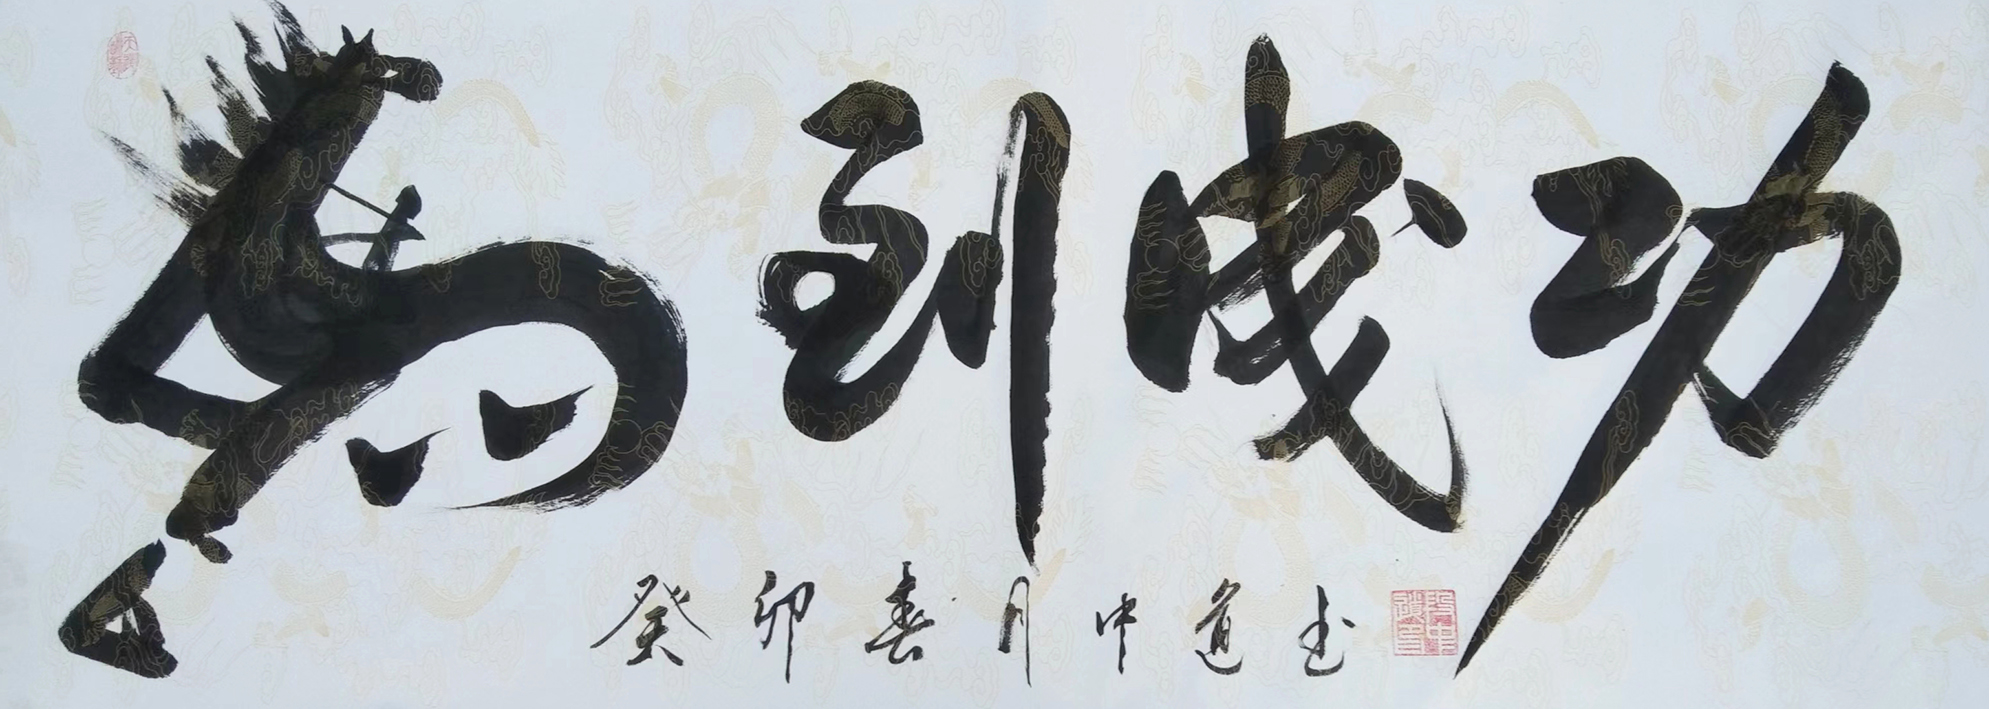 马到成功
癸卯春月中道书